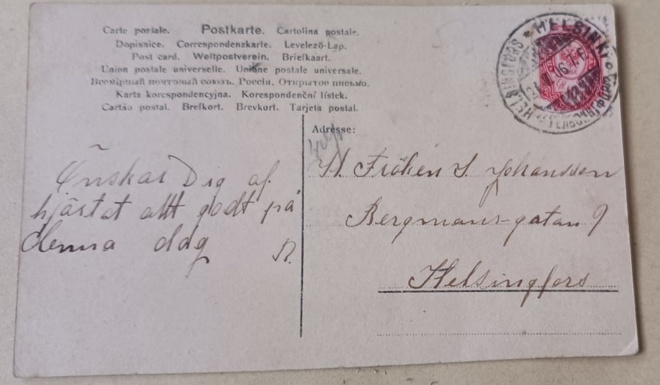 Carte postale. Postkarte. Cartolina postale.
Dopisnice. Correspondenzkarte. Levelező-Lap.
Post card. Weltpostverein. Briefkaart.
Union postale universelle. Unione postale universale.
Всемірный почтовый союзъ. Россія. Открытое письмо.
Karta korespondencyjna. Korespondenční lístek.
Cartão postal. Brefkort. Brevkort. Tarjeta postal.
HELSINKI
HELSINGFORS
Adresse:
Önskar Dig af
hjärtat allt godt på
denna dag
Fröken S. Johansson
Bergmansgatan 9
Helsingfors